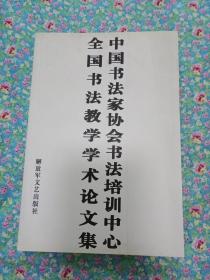 中国书法家协会书法培训中心
全国书法教学学术论文集
解放军文艺出版社